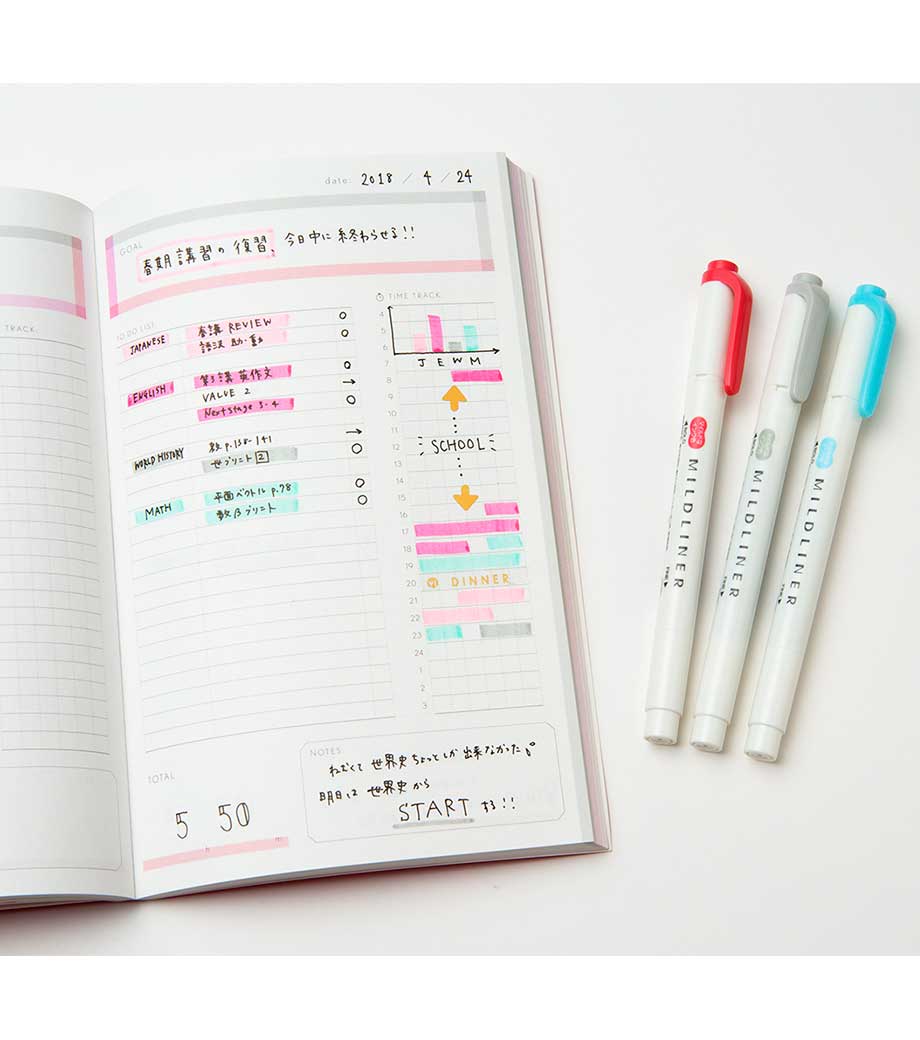 date: 2018 / 4 / 24
GOAL
春期講習の復習、今日中に終わらせる!!
TO DO LIST
TIME TRACK
JAPANESE 春講 REVIEW
語法 助・動
ENGLISH 第3講 英作文
VALUE 2
Next stage 3-4
WORLD HISTORY 教 p.138-141
世プリント 2
MATH 平面ベクトル p.78
数Bプリント
4
5
6
J E W M
7
8
9
10
11
12 SCHOOL
13
14
15
16
17
18
19
20 DINNER
21
22
23
1
2
3
TOTAL
5 50
NOTES
ねむくて世界史ちょっとしか出来なかった。
明日は世界史から
START する!!
TRACK
MILDLINER
MILDLINER
MILDLINER